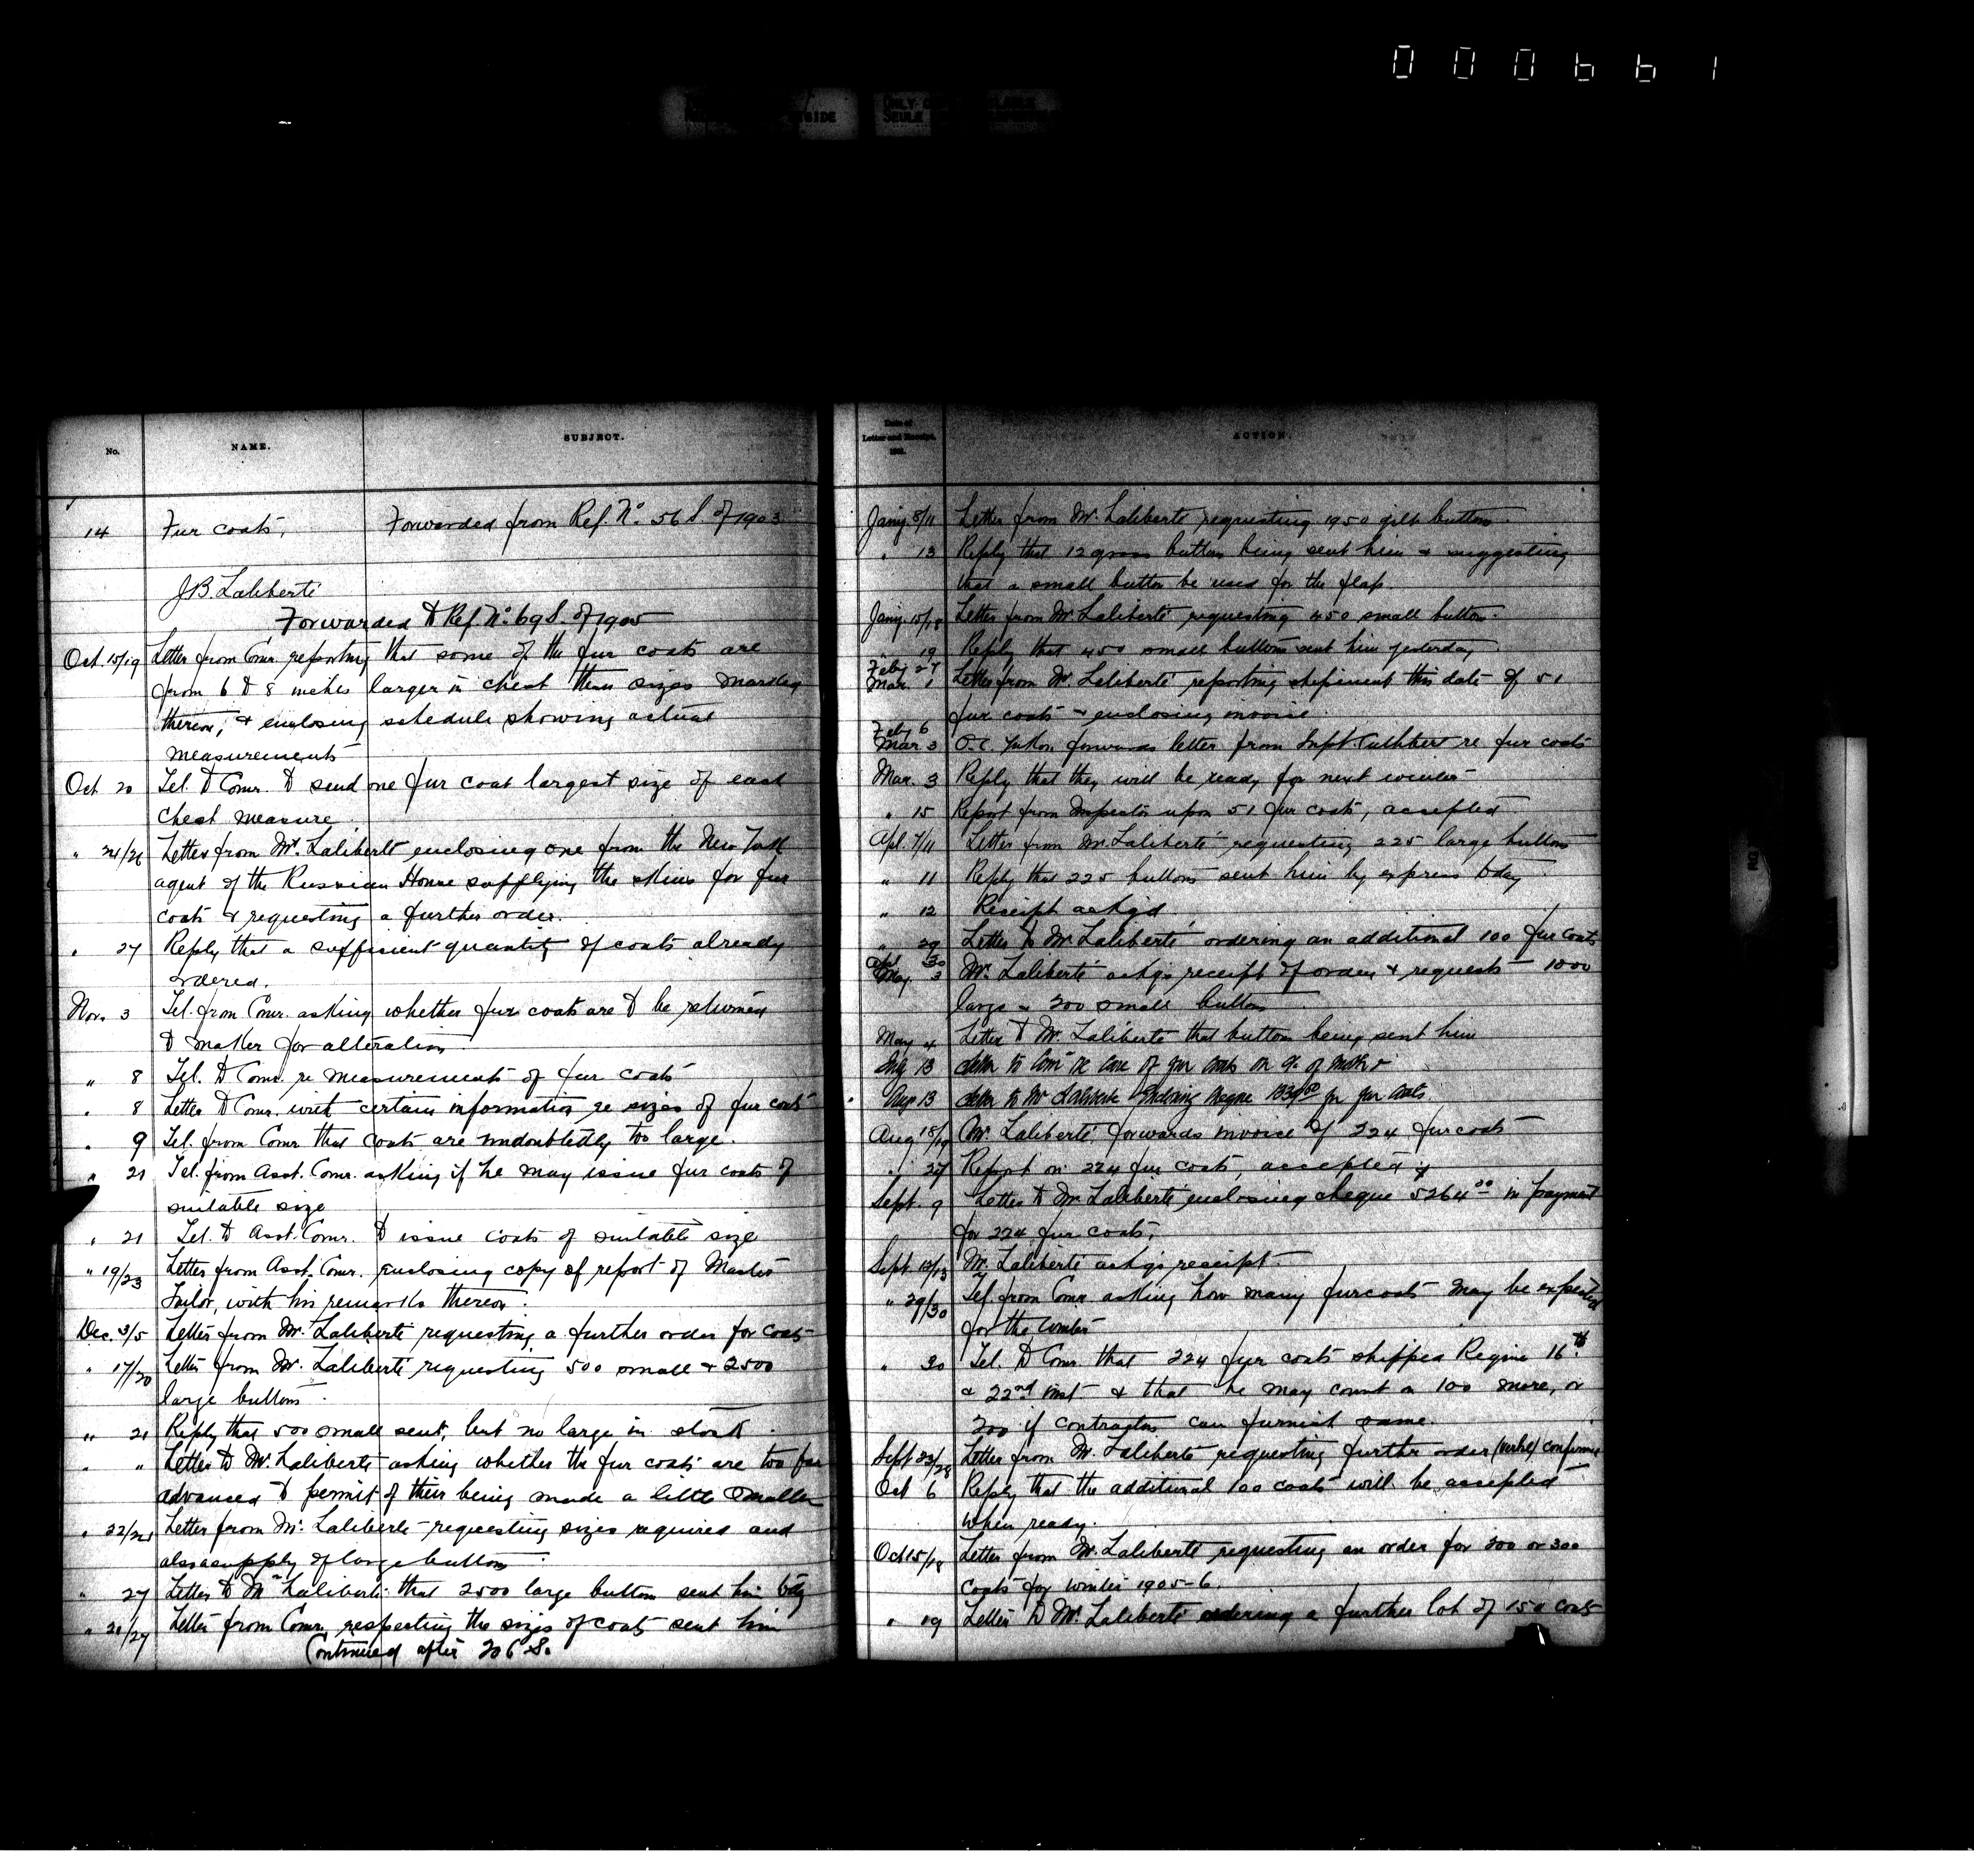 000661
No.
NAME.
SUBJECT.
14
Fur coats,
Forwarded from Ref. No. 56 S. of 1903
J.B. Laliberté
Forwarded to Ref. No. 69 S. of 1905
Oct. 15/19 Letter from Comr. reporting that some of the fur coats are
from 6 to 8 inches larger in chest than sizes marked
thereon, & enclosing schedule showing actual
measurements
Oct 20 Tel. to Comr. to send one fur coat largest size of each
chest measure
" 24/26 Letter from Mr. Laliberté enclosing one from the New York
agent of the Russian House supplying the skins for fur
coats & requesting a further order.
" 27 Reply that a sufficient quantity of coats already
ordered.
Nov. 3 Tel. from Comr. asking whether fur coats are to be returned
to maker for alteration
" 8 Tel. to Comr. re measurements of fur coats
" 8 Letter to Comr. with certain information re sizes of fur coats
" 9 Tel. from Comr. that coats are undoubtedly too large.
" 21 Tel. from Asst. Comr. asking if he may issue fur coats of
suitable size
" 21 Tel. to Asst. Comr. to issue coats of suitable size
" 19/23 Letter from Asst. Comr. enclosing copy of report of Master
Tailor, with his remarks thereon.
Dec. 3/5 Letter from Mr. Laliberté requesting a further order for coats
" 17/20 Letter from Mr. Laliberté requesting 500 small & 2500
large buttons.
" 21 Reply that 500 small sent, but no large in stock
" " Letter to Mr. Laliberté asking whether the fur coats are too far
advanced to permit of their being made a little smaller
" 22/24 Letter from Mr. Laliberté requesting sizes required and
also a supply of large buttons
" 27 Letter to Mr. Laliberté that 2500 large buttons sent him today
" 21/27 Letter from Comr. respecting the sizes of coats sent him
Continued after 206 S.
Date of
Letter and Receipt,
ACTION.
Jany. 8/11 Letter from Mr. Laliberté requesting 1950 gilt buttons.
" 13 Reply that 12 gross buttons being sent him & suggesting
that a small button be used for the flap.
Jany. 15/18 Letter from Mr. Laliberté requesting 450 small buttons.
" 19 Reply that 450 small buttons sent him yesterday
Feby 27
Mar. 1 Letter from Mr. Laliberté reporting shipment this date of 51
fur coats & enclosing invoice
Feby 6
Mar 3 O.C. Yukon forwards letter from Inspt. Cuthbert re fur coats
Mar. 3 Reply that they will be ready for next winter
" 15 Report from Inspector upon 51 fur coats, accepted
Apl. 7/11 Letter from Mr. Laliberté requesting 225 large buttons
" 11 Reply that 225 buttons sent him by express today
" 12 Receipt ackgd.
" 29 Letter to Mr. Laliberté ordering an additional 100 fur coats
Apl 30
May. 3 Mr. Laliberté ackgs receipt of order & requests 1000
large & 200 small buttons
May 4 Letter to Mr. Laliberté that buttons being sent him
Aug 13 Letter to Comr re care of fur coats on a/c of moths
Aug 13 Letter to Mr Laliberté Enclosing cheque for fur coats.
Aug 18/19 Mr. Laliberté forwards invoice of 224 fur coats
" 27 Report on 224 fur coats, accepted
Sept. 9 Letter to Mr. Laliberté enclosing cheque 5264.00 in payment
for 224 fur coats,
Sept. 12/13 Mr. Laliberté ackgs receipt.
" 29/30 Tel. from Comr. asking how many fur coats may be expected
for the winter
" 30 Tel. to Comr. that 224 fur coats shipped Regina 16th
& 22nd inst. & that he may count on 100 more, or
200 if contractor can furnish same.
Sept 23/28 Letter from Mr. Laliberté requesting further order (verbal) confirmed
Oct 6 Reply that the additional 100 coats will be accepted
when ready.
Oct 15/18 Letter from Mr. Laliberté requesting an order for 200 or 300
coats for winter 1905-6.
" 19 Letter to Mr. Laliberté ordering a further lot of 150 coats